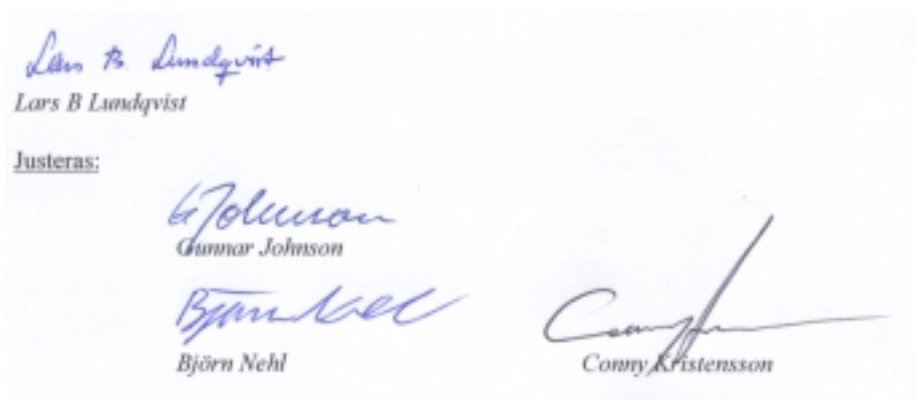 Lars B. Lundqvist
Lars B Lundqvist
Justeras:
G Johnson
Gunnar Johnson
Björn Nehl
Björn Nehl
Conny Kristensson